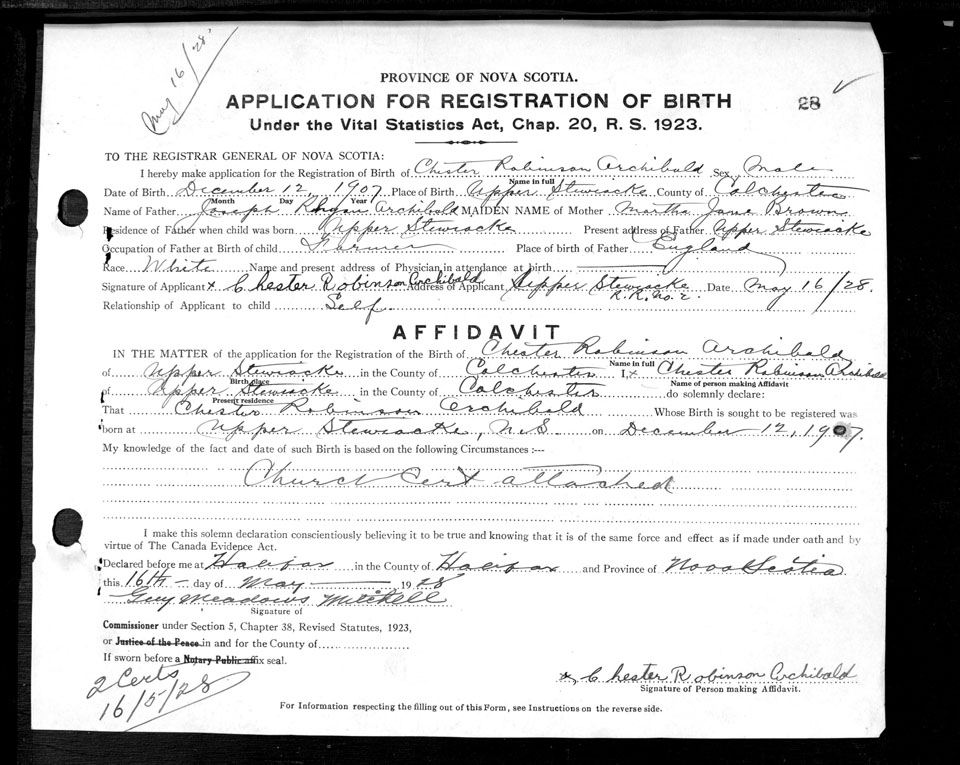 May 16/28
PROVINCE OF NOVA SCOTIA.
28
APPLICATION FOR REGISTRATION OF BIRTH
Under the Vital Statistics Act, Chap. 20, R. S. 1923.
TO THE REGISTRAR GENERAL OF NOVA SCOTIA:
I hereby make application for the Registration of Birth of Chester Robinson Archibald Sex Male
Name in full
Date of Birth December 12, 1907 Place of Birth Upper Stewiacke County of Colchester
Month Day Year
Name of Father Joseph Archibald MAIDEN NAME of Mother Martha Jane Brown
Residence of Father when child was born Upper Stewiacke Present address of Father Upper Stewiacke
Occupation of Father at Birth of child Farmer Place of birth of Father England
Race White Name and present address of Physician in attendance at birth
Signature of Applicant x Chester Robinson Archibald Address of Applicant Upper Stewiacke Date May 16/28.
R.R. No. 2.
Relationship of Applicant to child Self
AFFIDAVIT
IN THE MATTER of the application for the Registration of the Birth of Chester Robinson Archibald
Name in full
of Upper Stewiacke in the County of Colchester I, x Chester Robinson Archibald
Birth place Name of person making Affidavit
of Upper Stewiacke in the County of Colchester do solemnly declare:
Present residence
That Chester Robinson Archibald Whose Birth is sought to be registered was
born at Upper Stewiacke, N.S. on December 12, 1907.
My knowledge of the fact and date of such Birth is based on the following Circumstances :---
Church Cert attached
I make this solemn declaration conscientiously believing it to be true and knowing that it is of the same force and effect as if made under oath and by
virtue of The Canada Evidence Act.
Declared before me at Halifax in the County of Halifax and Province of Nova Scotia
this 16th day of May 1928
Guy Meadows Mitchell
Signature of
Commissioner under Section 5, Chapter 38, Revised Statutes, 1923,
or Justice of the Peace in and for the County of
If sworn before a Notary Public affix seal.
2 Certs
16/5/28
x Chester Robinson Archibald
Signature of Person making Affidavit.
For Information respecting the filling out of this Form, see Instructions on the reverse side.